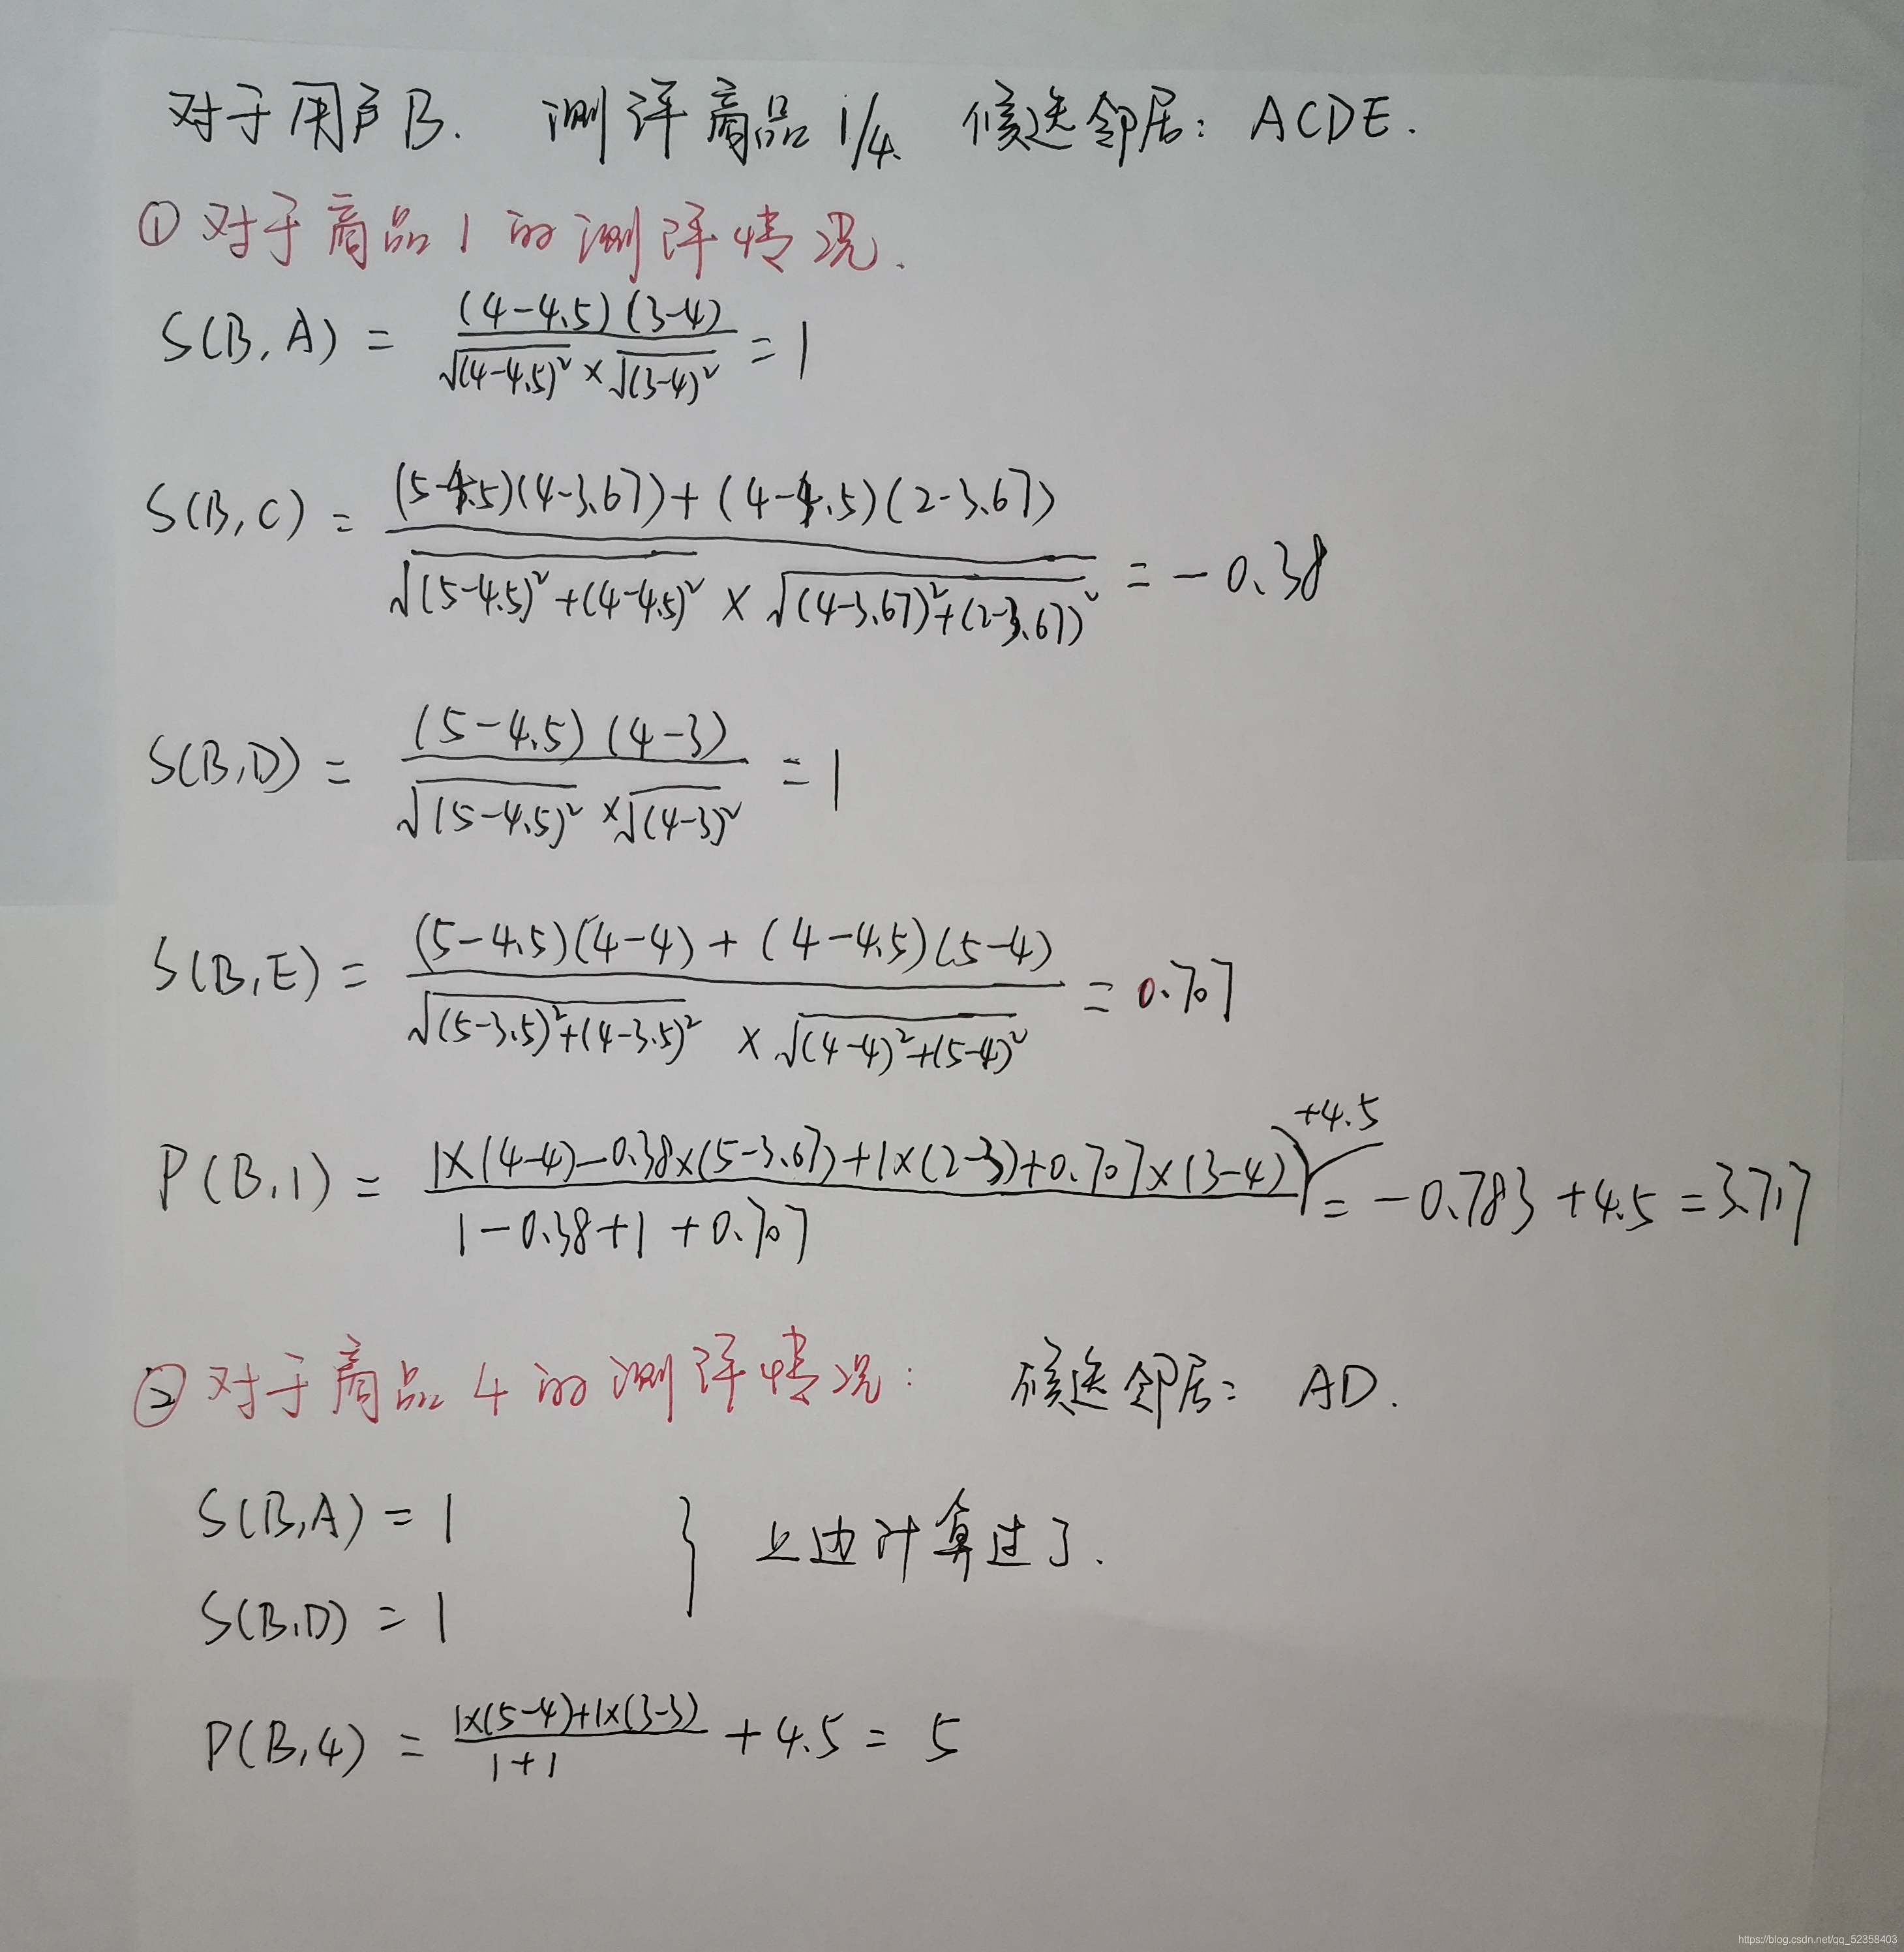 对于用户B. 测评商品1/4. 候选邻居: ACDE.
①对于商品1的测评情况.
S(B,A) = (4-4.5)(3-4) / √(4-4.5)² × √(3-4)² = 1
S(B,C) = (5-4.5)(4-3.67)+(4-4.5)(2-3.67) / √(5-4.5)²+(4-4.5)² × √(4-3.67)²+(2-3.67)² = -0.38
S(B,D) = (5-4.5)(4-3) / √(5-4.5)² × √(4-3)² = 1
S(B,E) = (5-4.5)(4-4)+(4-4.5)(5-4) / √(5-3.5)²+(4-3.5)² × √(4-4)²+(5-4)² = 0.707
P(B,1) = 1×(4-4)-0.38×(5-3.67)+1×(2-3)+0.707×(3-4) / 1-0.38+1+0.707 +4.5 = -0.783+4.5=3.717
②对于商品4的测评情况: 候选邻居: AD.
S(B,A) = 1
} 上边计算过了.
S(B,D) = 1
P(B,4) = 1×(5-4)+1×(3-3) / 1+1 + 4.5 = 5
https://blog.csdn.net/qq_52358403